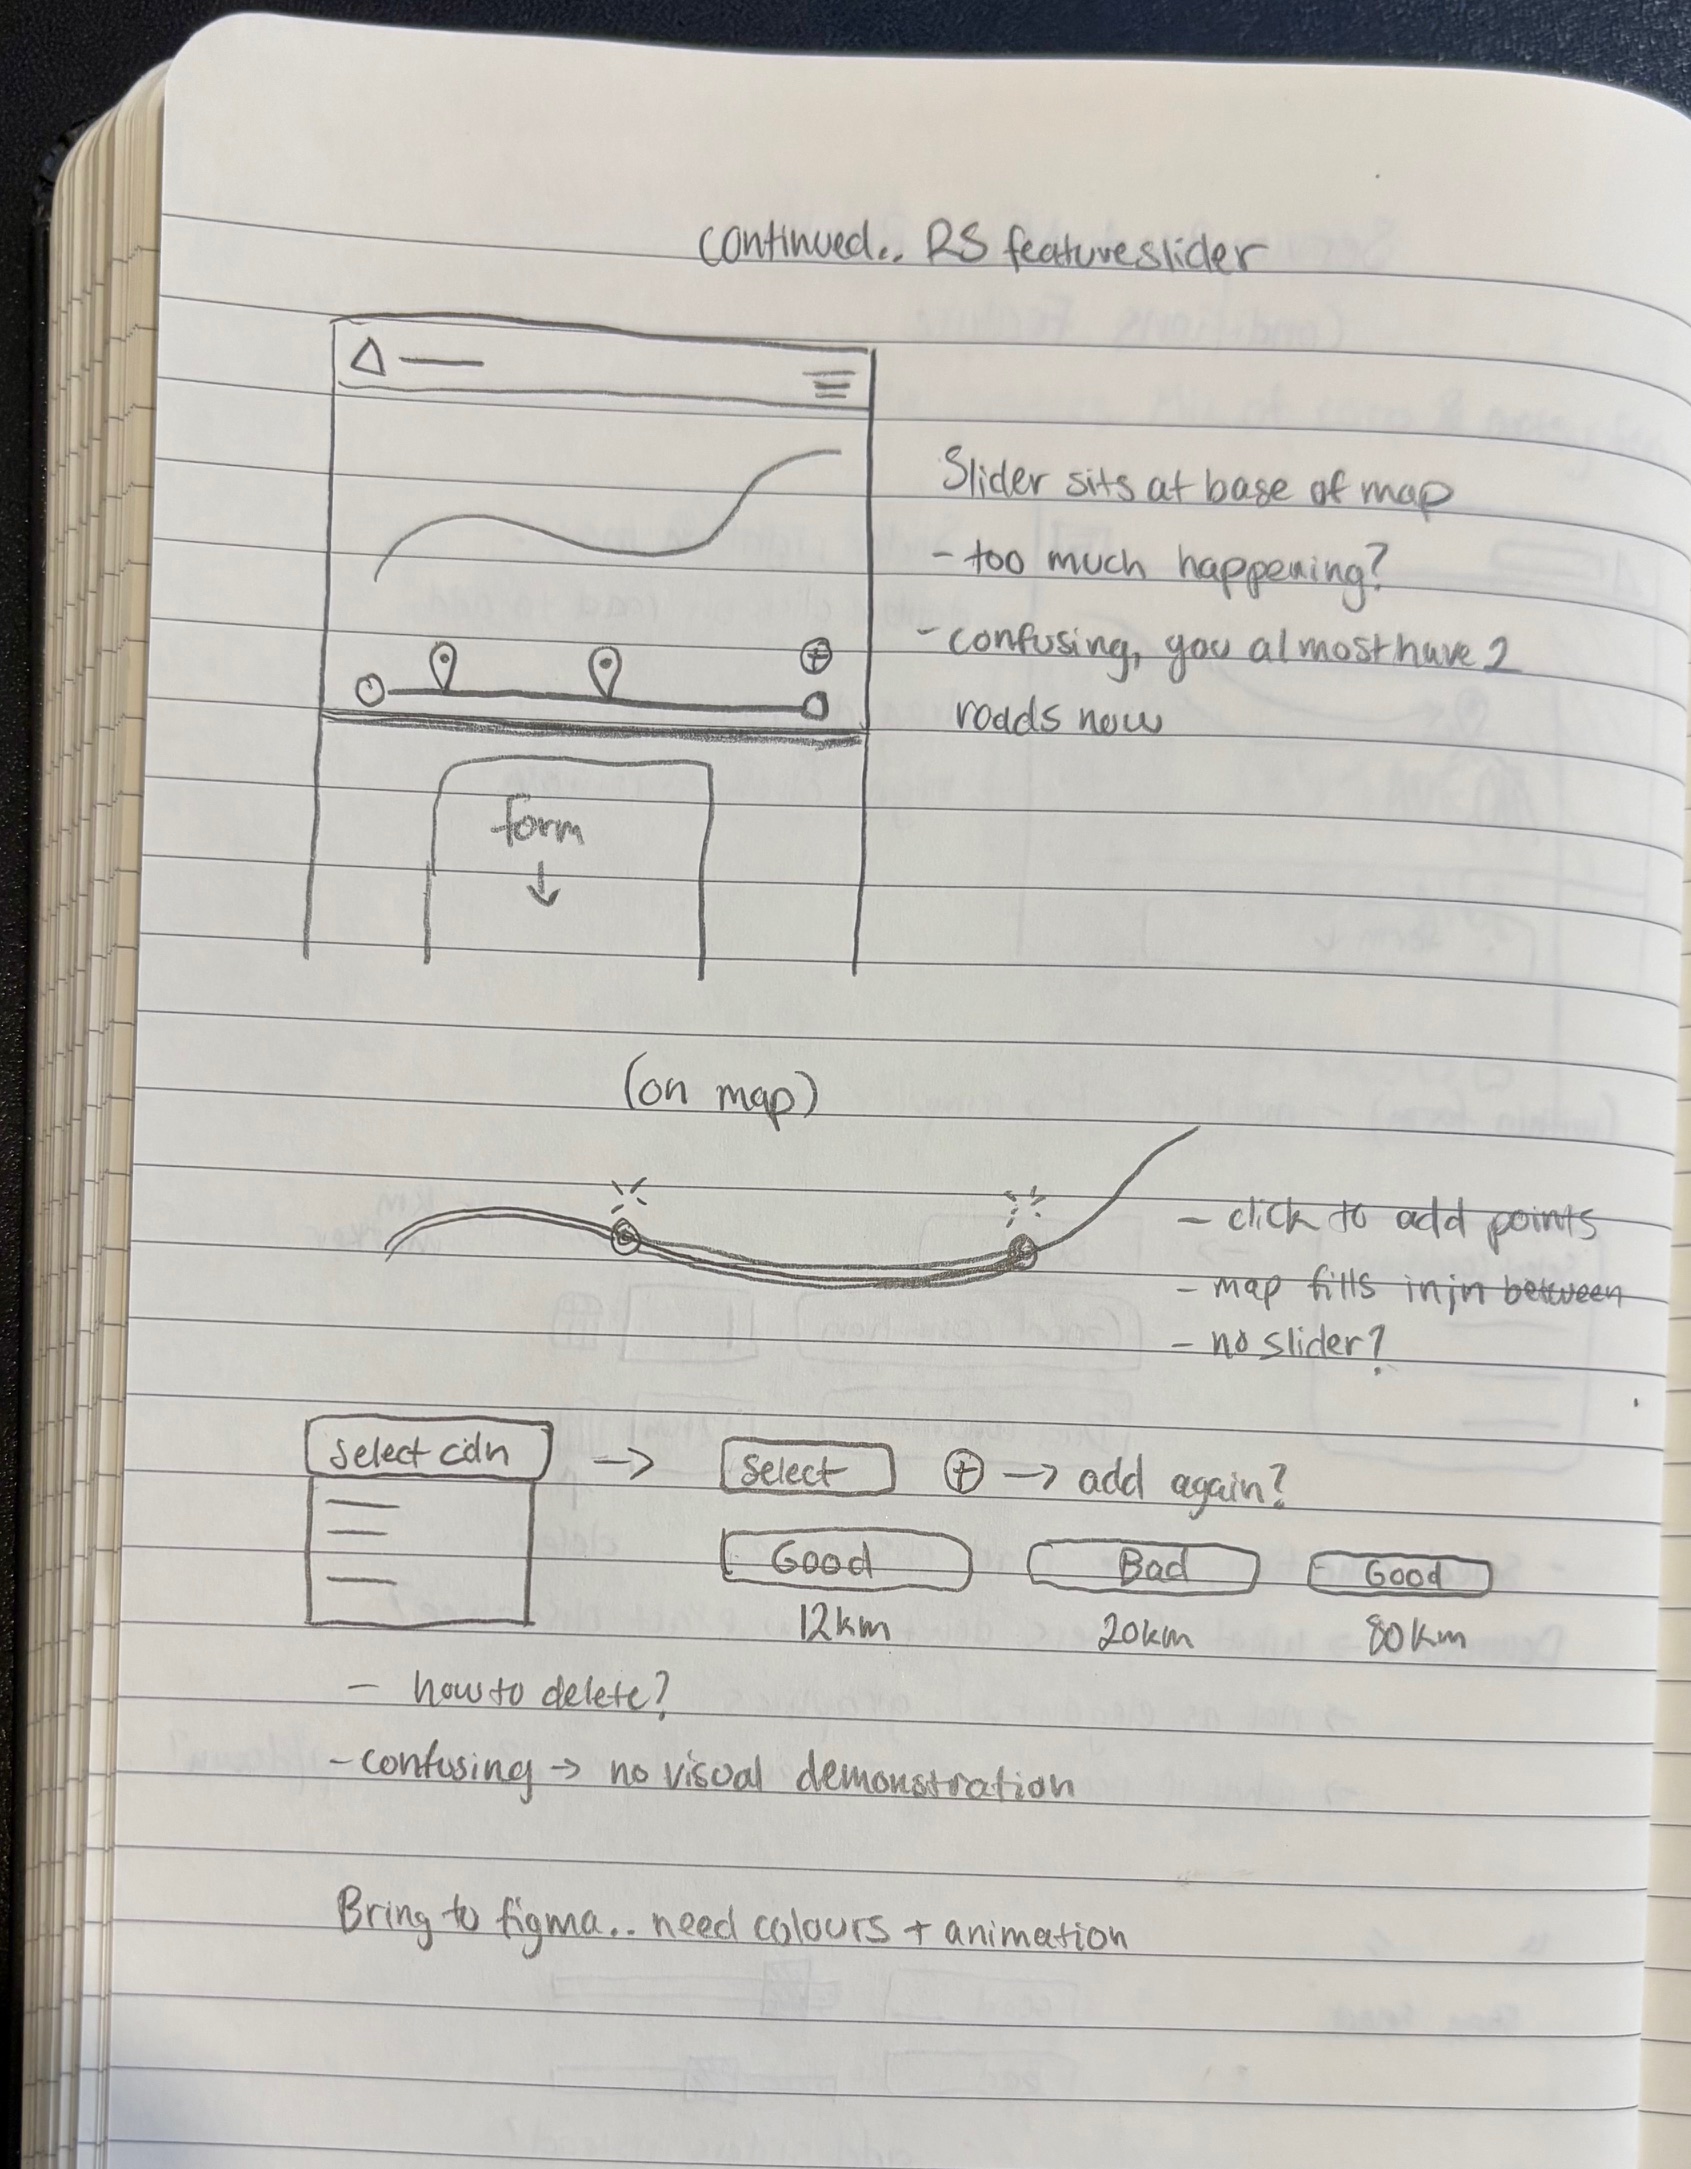 continued.. RS feature slider
Slider sits at base of map
- too much happening?
- confusing, you almost have 2
roads now
form
↓
(on map)
- click to add points
- map fills in in between
- no slider?
Select cdn → Select + → add again?
Good Bad Good
12km 20km 80km
- how to delete?
- confusing → no visual demonstration
Bring to figma.. need colours + animation